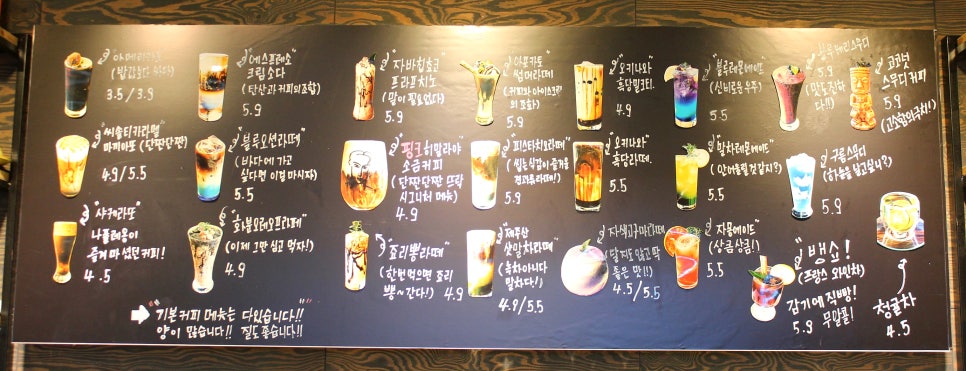 "아메리카노"
(밥값보다 싸다)
3.5 / 3.9
"에스프레소
크림소다"
(탄산과 커피의 조합)
5.9
"자바칩초코
프라프치노
(말이 필요없다)
5.9
"아포카토
썸머라떼"
(커피와 아이스크림
의 조화)
5.9
"오키나와
흑당밀크티.
4.9
"블루레몬에이드"
(신비로운 우주)
5.5
블루베리스무디
5.9
코코넛
스무디 커피
5.9
"씨솔티카라멜
마끼아또 (단짠단짠)
4.9/5.5
"블루오션라떼"
(바다에 가고
싶다면 이걸 마시자)
5.5
"핑크히말라야
소금커피
(단짠단짠 뜨락
시그니처 메뉴)
4.9
"피스타치오라떼"
5.9
"오키나와"
흑당라떼.
5.5
"말차레몬에이드"
5.5
"구름스무디
5.9
"샤케라또"
나폴레옹이
즐겨 마셨던 커피!
4.5
"화블오레오프라페"
(이제 그만 쉽 먹자!)
4.9
"죠리뽕라떼"
(한번먹으면 죠리
뽕~ 간다!)
4.9
"제주산
삿말차라떼"
(녹차아니다
말차다!)
4.9/5.5
"자색고구마라떼"
(달지도 않고 딱
좋은 맛!!)
4.5/5.5
"자몽에이드"
(상큼상큼!)
5.5
"뱅쇼!
(프랑스 와인차)
감기에 직빵!
5.9 무알콜!
청귤차
4.5
"기본커피 메뉴는 다있습니다!!"
양이 많습니다!! 질도좋습니다!!